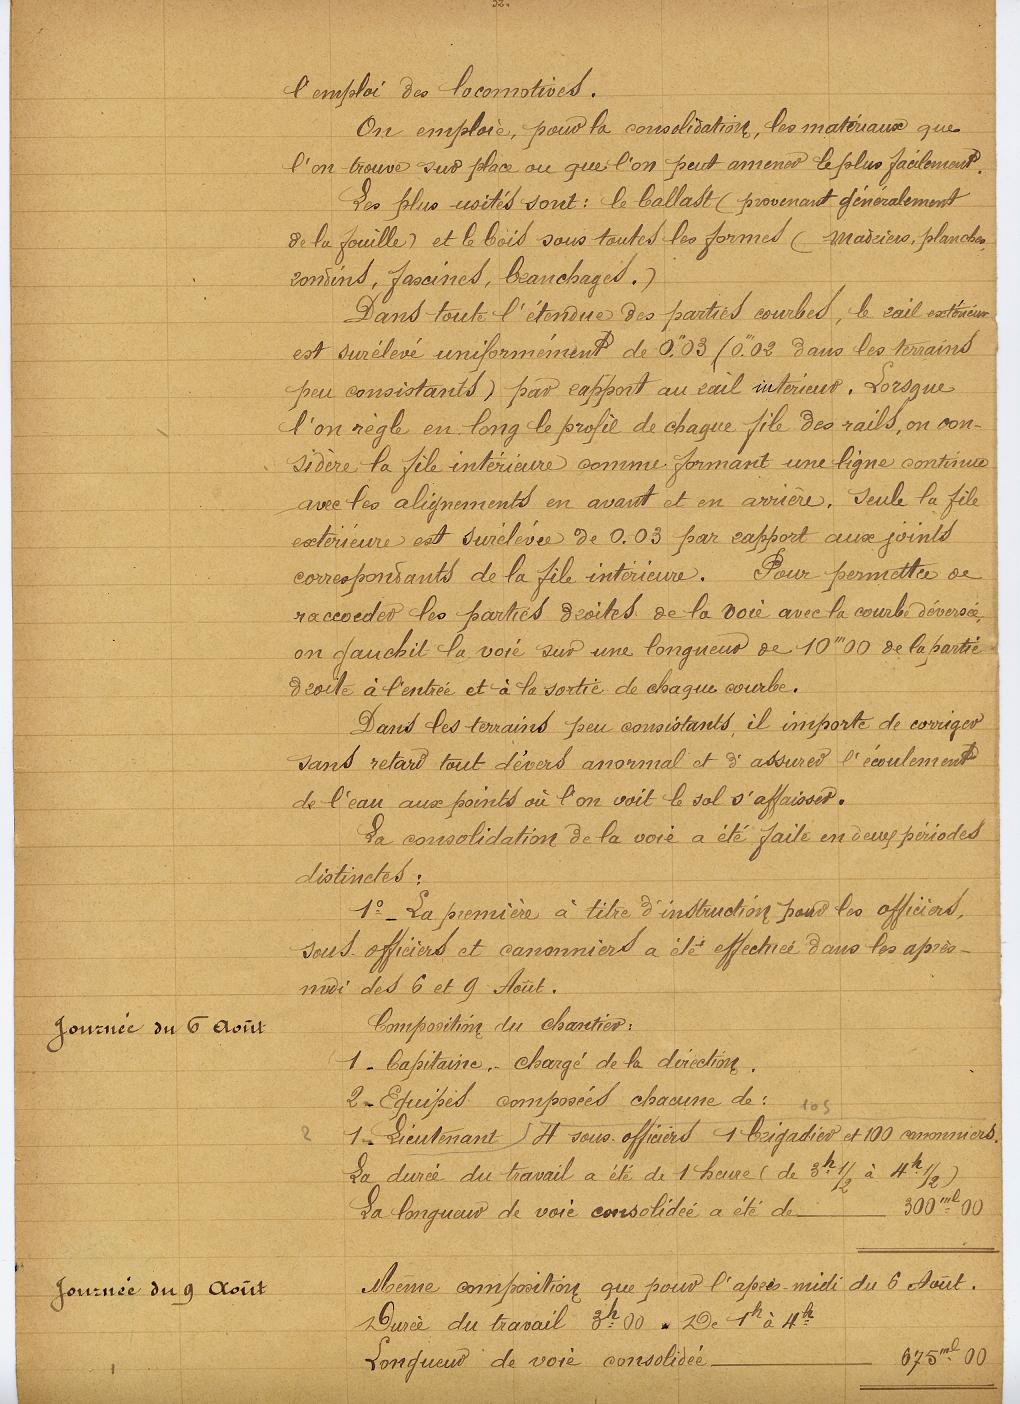 32.
l'emploi des locomotives.
On emploie, pour la consolidation, les matériaux que
l'on trouve sur place ou que l'on peut amener le plus facilement.
Les plus usités sont : le ballast (provenant généralement
de la fouille) et le bois sous toutes les formes (Madriers, planches,
rondins, fascines, branchages.)
Dans toute l'étendue des parties courbes, le rail extérieur
est surélevé uniformément de 0.m03 (0.m02 dans les terrains
peu consistants) par rapport au rail intérieur. Lorsque
l'on règle en long le profil de chaque file des rails, on con-
sidère la file intérieure comme formant une ligne continue
avec les alignements en avant et en arrière. Seule la file
extérieure est surélevée de 0.03 par rapport aux joints
correspondants de la file intérieure. Pour permettre de
raccorder les parties droites de la voie avec la courbe déversée,
on gauchit la voie sur une longueur de 10m00 de la partie
droite à l'entrée et à la sortie de chaque courbe.
Dans les terrains peu consistants, il importe de corriger
sans retard tout dévers anormal et d'assurer l'écoulement
de l'eau aux points où l'on voit le sol s'affaisser.
La consolidation de la voie a été faite en deux périodes
distinctes :
1º_ La première à titre d'instruction pour les officiers,
sous-officiers et canonniers a été effectuée dans les après-
midi des 6 et 9 Août.
Journée du 6 Août
Composition du chantier :
1 - Capitaine.- chargé de la direction.
2 - Equipes composées chacune de :
105
2 1 - Lieutenant 4 sous-officiers 1 brigadier et 100 canonniers.
La durée du travail a été de 1 heure (de 3h 1/2 à 4h 1/2)
La longueur de voie consolidée a été de 300ml00
Journée du 9 Août
Même composition que pour l'après-midi du 6 Août.
Durée du travail 3h00. De 1h à 4h
Longueur de voie consolidée 675ml00